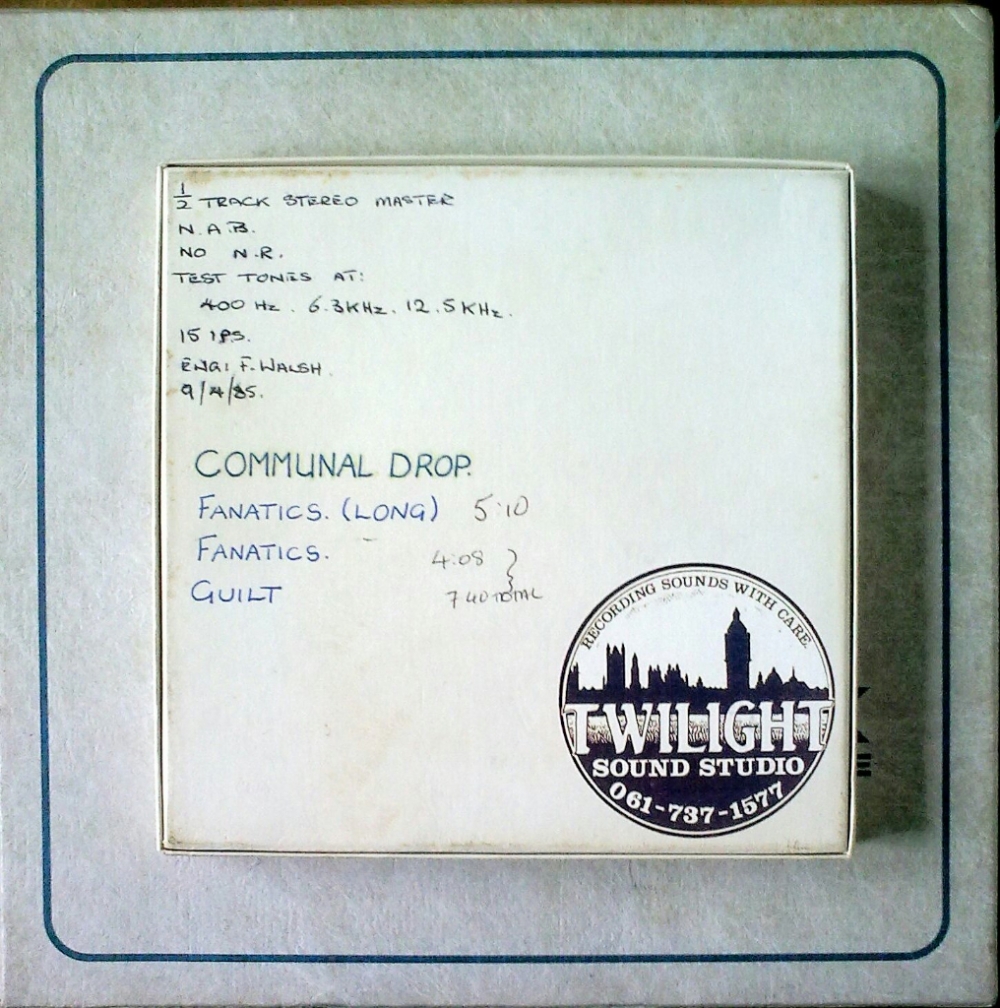 1/2 TRACK STEREO MASTER
N.A.B.
NO N.R.
TEST TONES AT:
400 Hz. 6.3KHz. 12.5KHz.
15 IPS.
ENG: F. WALSH
9/4/85.
COMMUNAL DROP.
FANATICS. (LONG) 5:10
FANATICS. 4:08 }
GUILT 7 40 TOTAL
RECORDING SOUNDS WITH CARE.
TWILIGHT
SOUND STUDIO
061-737-1577